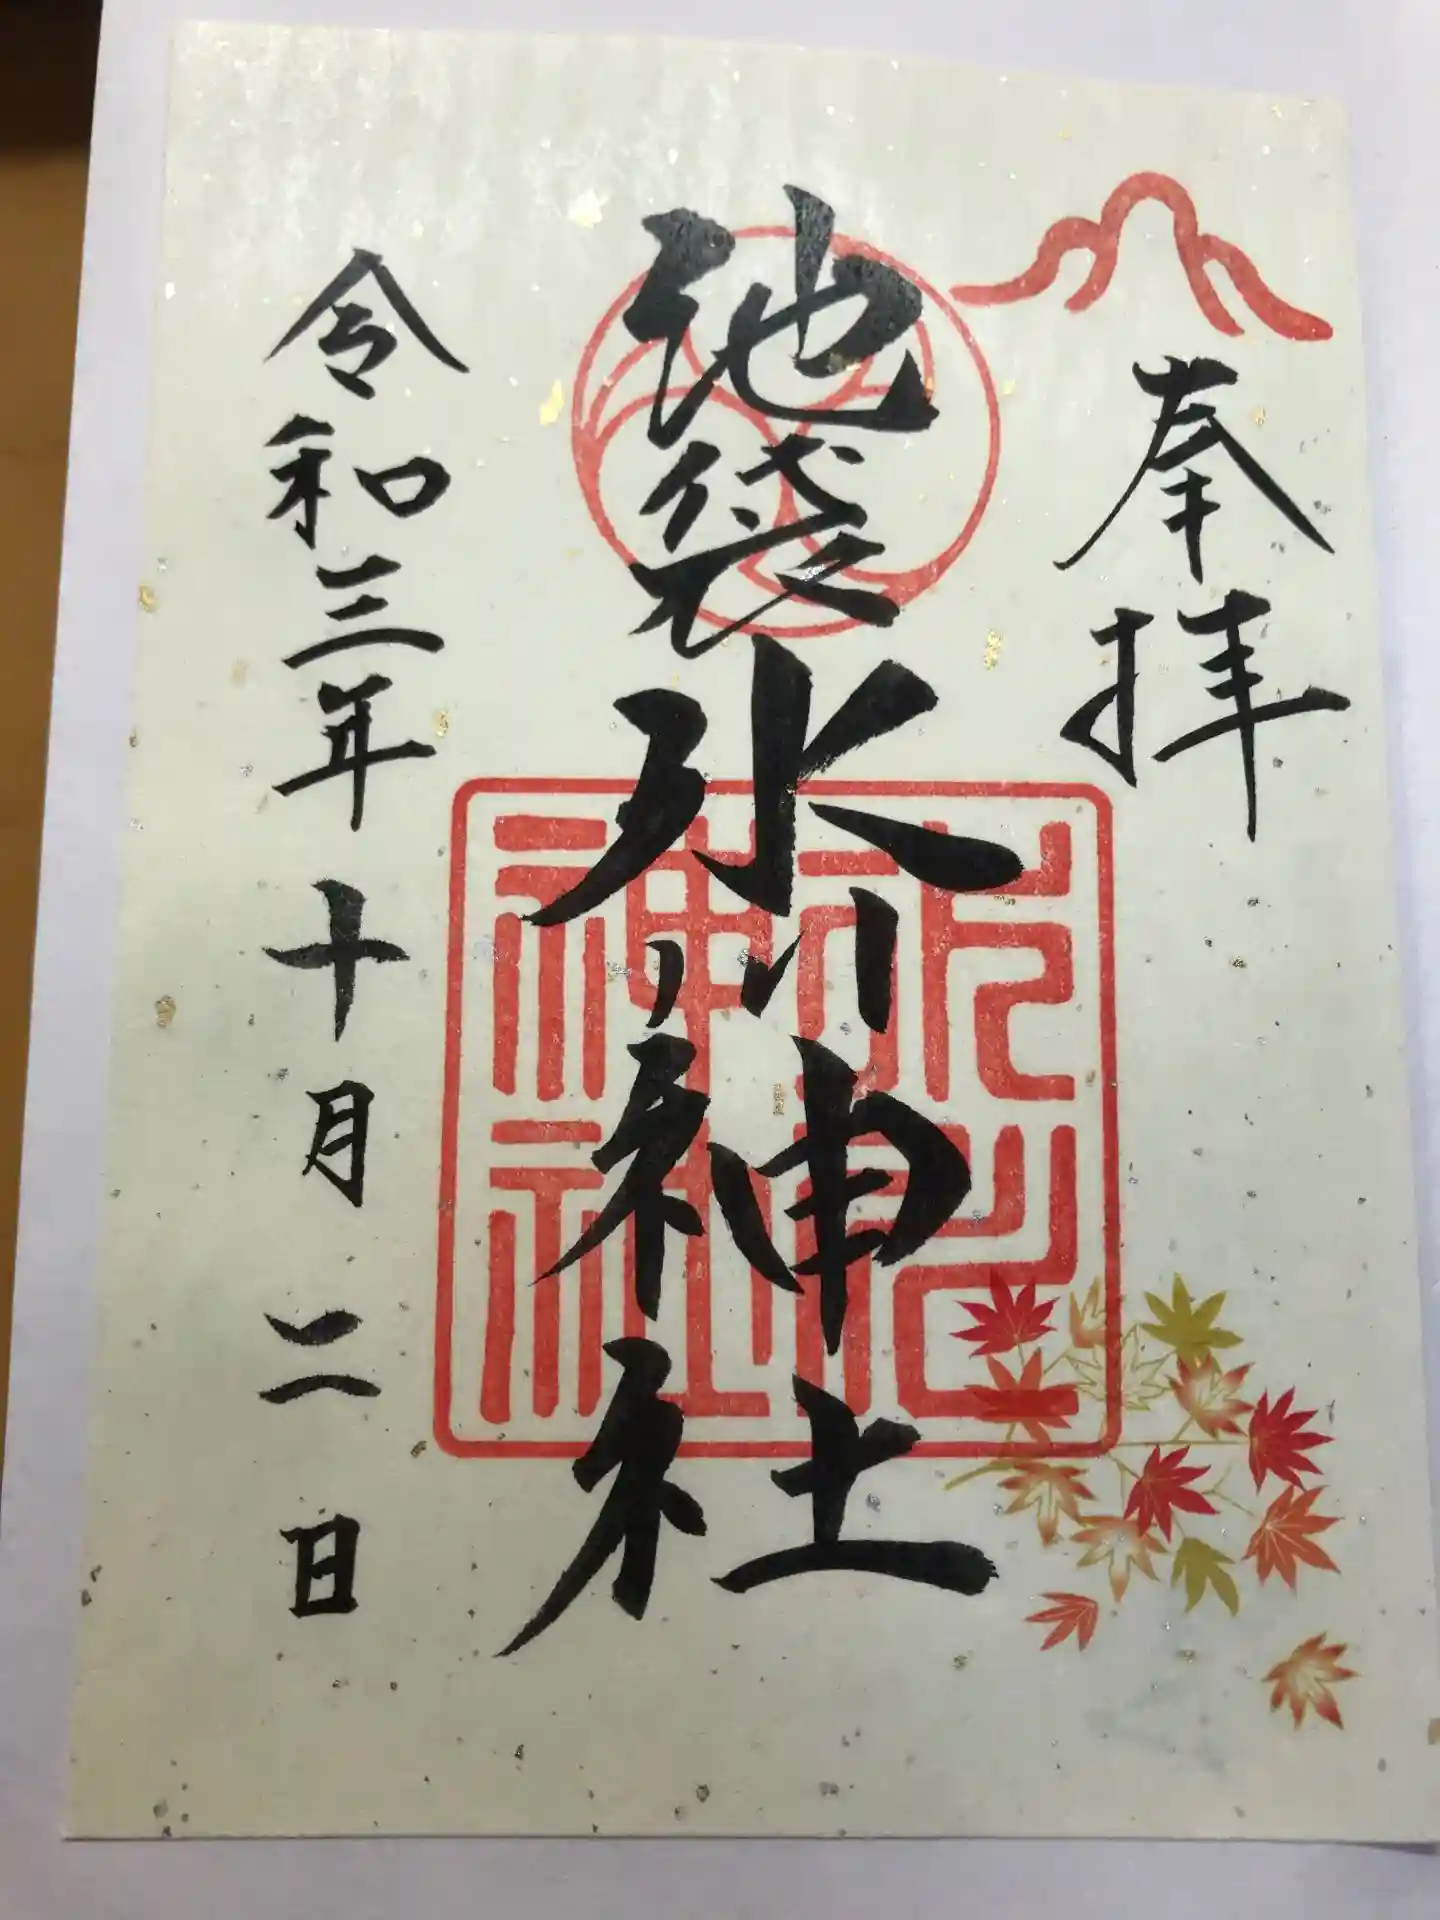 奉拝
池袋氷川神社
氷川神社
令和三年十月二日